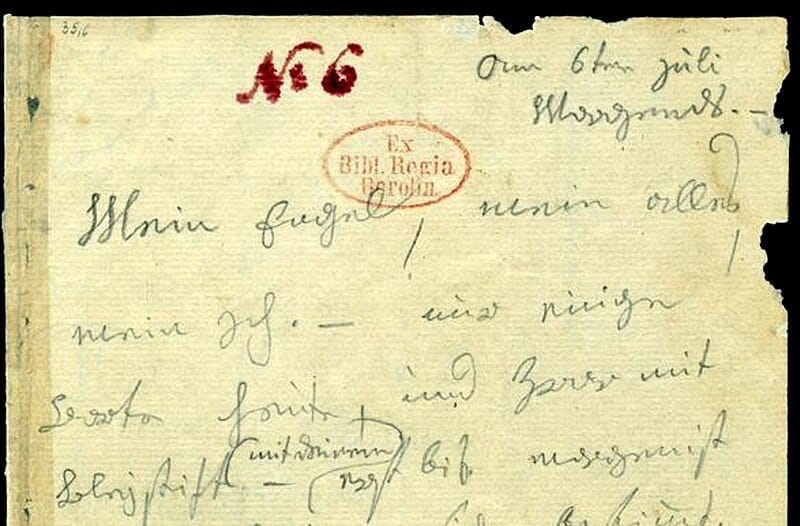 № 6
am 6ten juli
Morgends. –
Ex
Bibl. Regia
Berolin.
Mein Engel, mein alles,
mein Ich. – nur einige
Worte heute, und zwar mit
Bleystift – (mit deinem) erst bis morgen ist